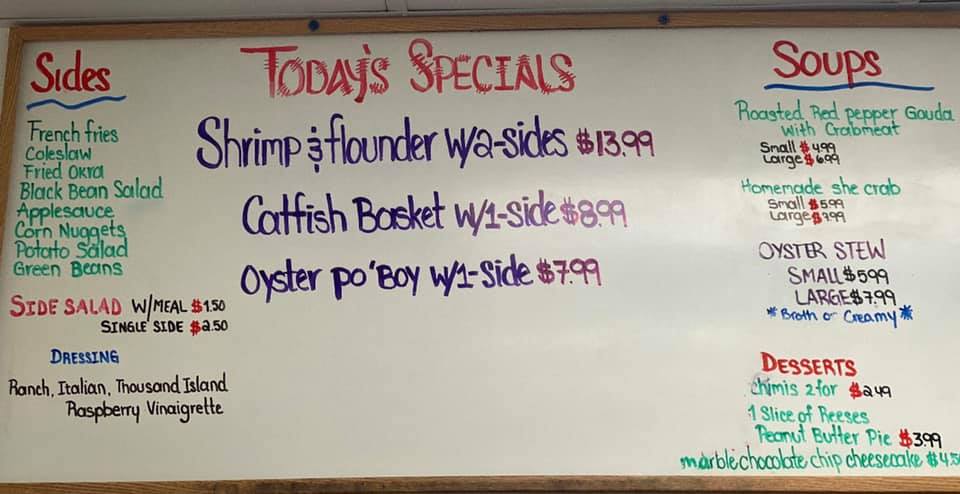 Sides
French fries
Coleslaw
Fried Okra
Black Bean Salad
Applesauce
Corn Nuggets
Potato Salad
Green Beans
SIDE SALAD W/MEAL $1.50
SINGLE SIDE $2.50
DRESSING
Ranch, Italian, Thousand Island
Raspberry Vinaigrette
TODAY'S SPECIALS
Shrimp & flounder w/2-sides $13.99
Catfish Basket w/1-side $8.99
Oyster po'Boy w/1-Side $7.99
Soups
Roasted Red pepper Gouda
with Crabmeat
Small $4.99
Large $6.99
Homemade she crab
Small $5.99
Large $7.99
OYSTER STEW
SMALL $5.99
LARGE $7.99
*Broth or Creamy*
DESSERTS
Chimis 2 for $2.49
1 Slice of Reeses
Peanut Butter Pie $3.99
marble chocolate chip cheesecake